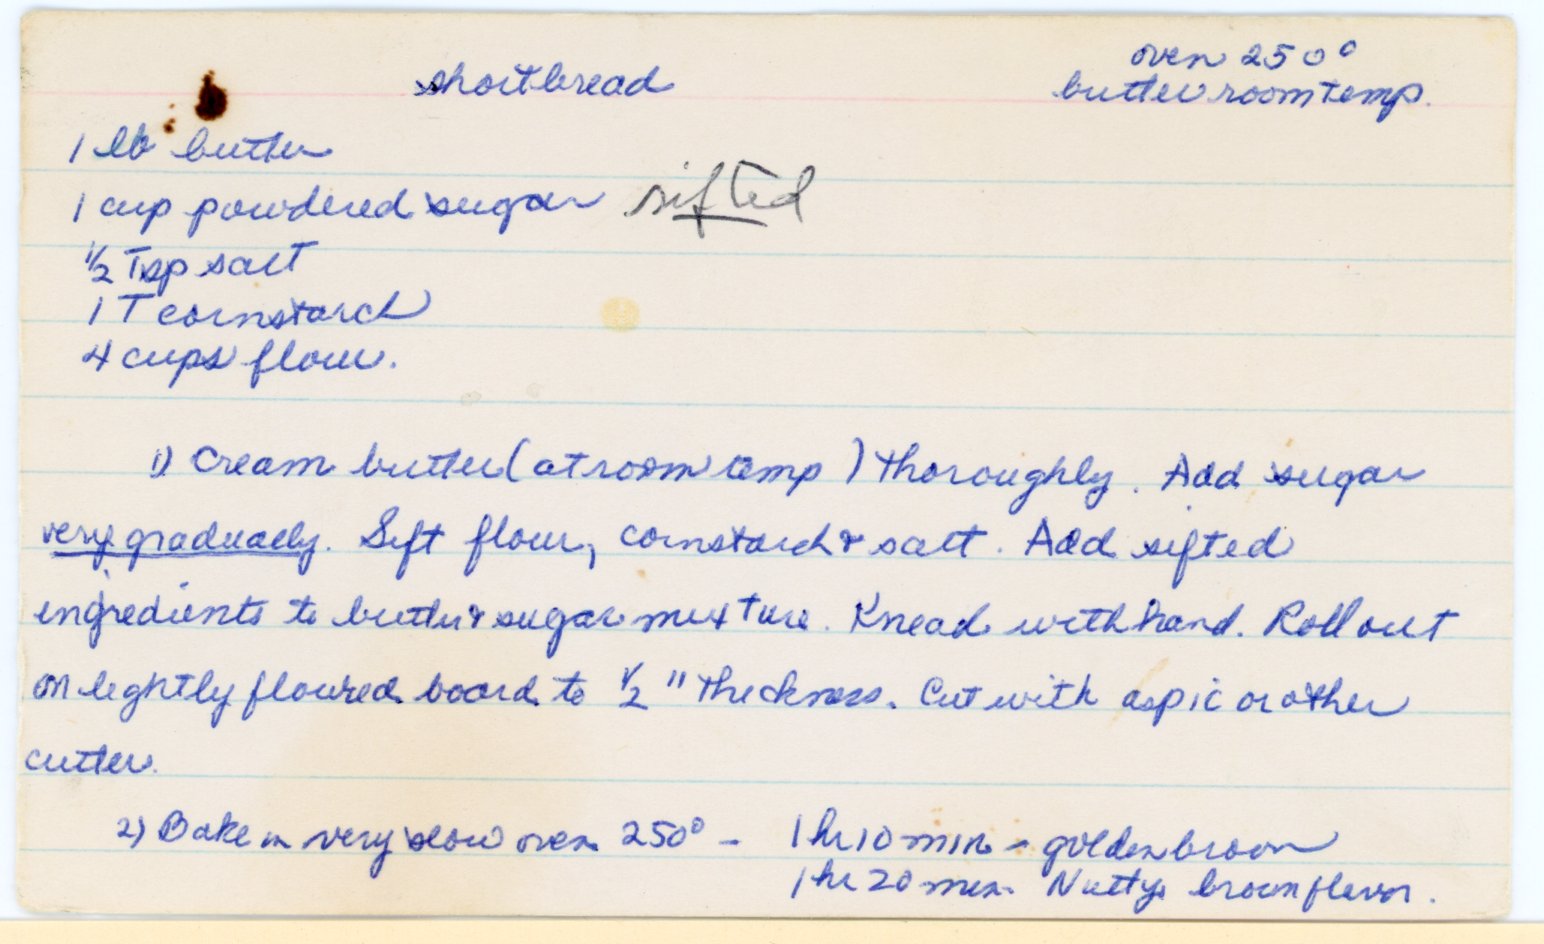 shortbread
oven 250°
butter room temp.
1 lb butter
1 cup powdered sugar sifted
1/2 Tsp salt
1 T cornstarch
4 cups flour.
1) Cream butter (at room temp) thoroughly. Add sugar
very gradually. Sift flour, cornstarch & salt. Add sifted
ingredients to butter & sugar mixture. Knead with hand. Roll out
on lightly floured board to 1/2" thickness. Cut with aspic or other
cutter.
2) Bake in very slow oven 250° - 1 hr 10 min - golden brown
1 hr 20 min - Nutty brown flavor.